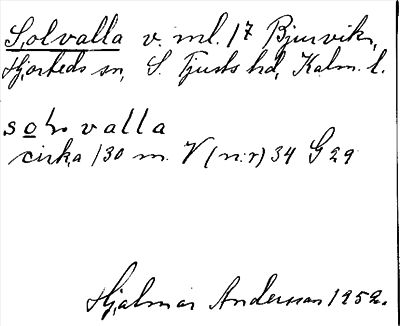 Solvalla v. ml. 17 Bjurvik,
Hjorteds sn, S. Tjusts hd, Kalm. l.
solvalla
cirka 130 m. V (n:r) 34 G 29
Hjalmar Andersson 1952.